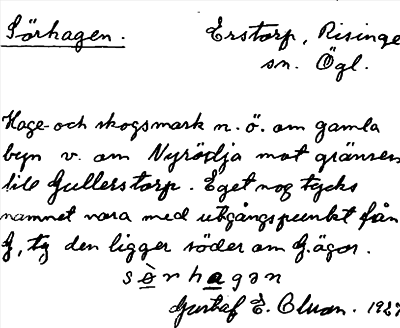 Sörhagen.
Erstorp, Risinge
sn. Ögl.
Hage- och skogsmark n. ö. om gamla
byn v. om Nyrödja mot gränsen
till Gullerstorp. Eget nog tycks
namnet vara med utgångspunkt från
G, ty den ligger söder om G. ägor.
sø̀rhagən
Gustaf E. Cluon. 1927